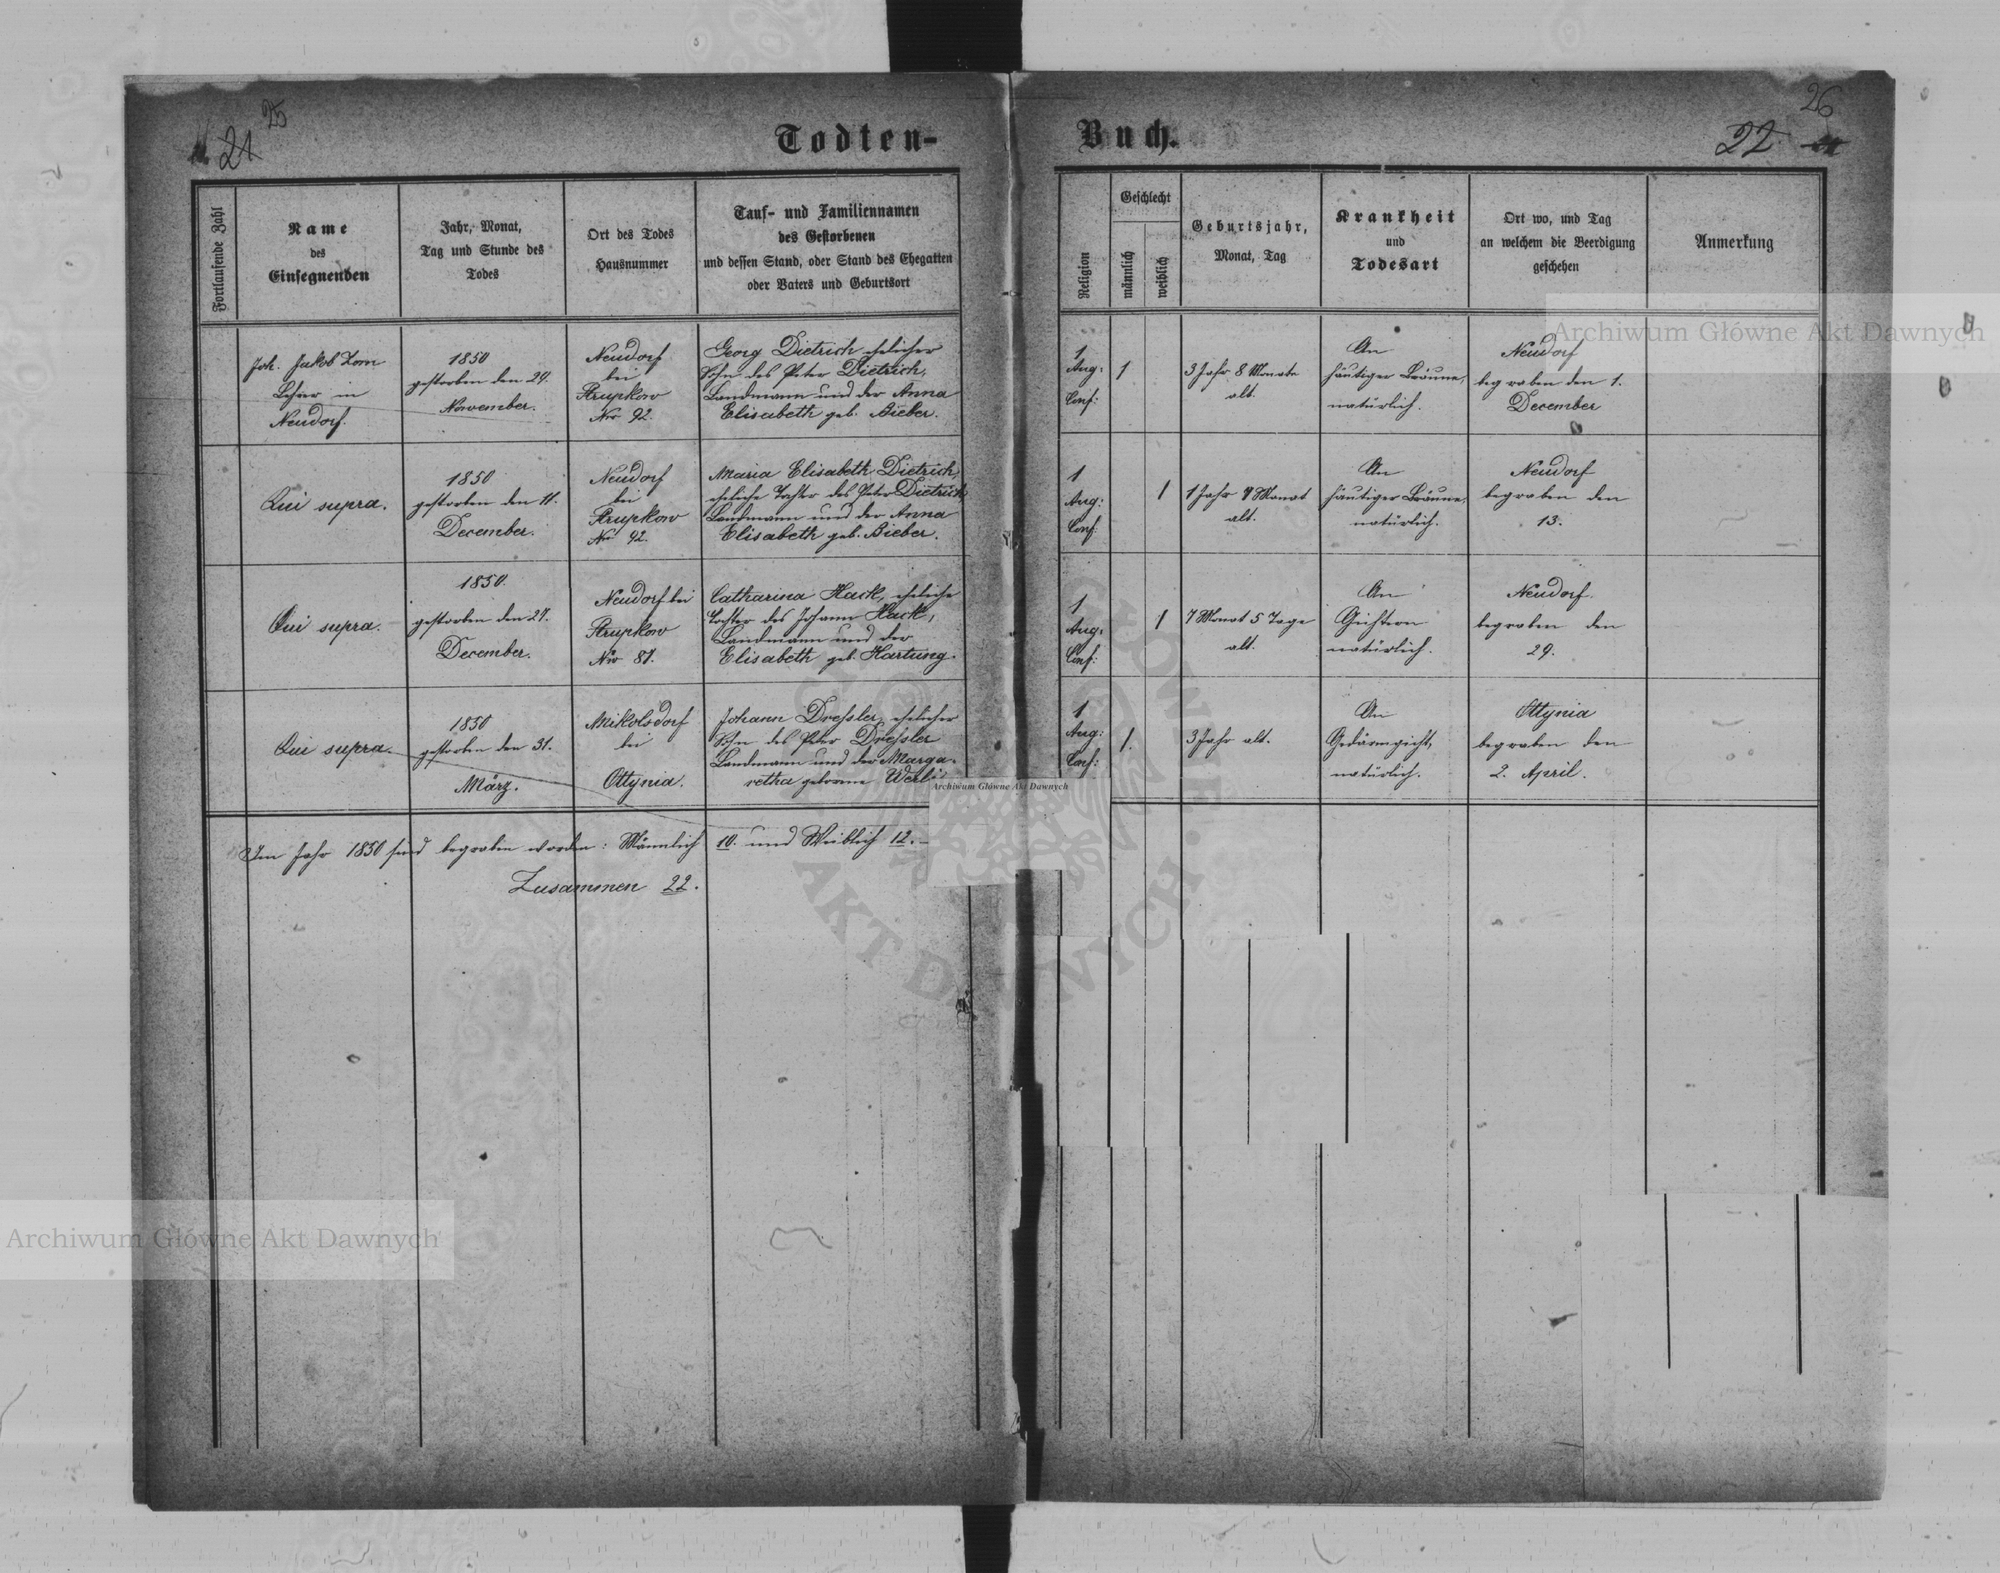 25
21
Todten-
Fortlaufende Zahl
Name
des
Einsegnenden
Jahr, Monat,
Tag und Stunde des
Todes
Ort des Todes
Hausnummer
Tauf- und Familiennamen
des Gestorbenen
und dessen Stand, oder Stand des Ehegatten
oder Vaters und Geburtsort
Joh. Jakob Zorn
Lehrer in
Neudorf.
1850
gestorben den 29.
November.
Neudorf
bei
Strupkow
Nro 92.
Georg Dietrich, ehelicher
Sohn des Peter Dietrich,
Landmann und der Anna
Elisabeth geb. Bieber.
Qui supra.
1850
gestorben den 11.
December.
Neudorf
bei
Strupkow
Nro 92.
Maria Elisabeth Dietrich,
eheliche Tochter des Peter Dietrich
Landmann und der Anna
Elisabeth geb. Bieber.
Qui supra.
1850.
gestorben den 27.
December.
Neudorf bei
Strupkow
Nro 87.
Catharina Hack, eheliche
Tochter des Johann Hack,
Landmann und der
Elisabeth geb. Hartung.
Qui supra.
1850
gestorben den 31.
März.
Mikolsdorf
bei
Ottynia.
Johann Dreßler, ehelicher
Sohn des Peter Dreßler
Landmann und der Marga-
retha geborne Werli
Im Jahr 1850 sind begraben worden: Männlich 10. und Weiblich 12.-
Zusammen 22.
26
22
Buch.
Religion
Geschlecht
männlich
weiblich
Geburtsjahr,
Monat, Tag
Krankheit
und
Todesart
Ort wo, und Tag
an welchem die Beerdigung
geschehen
Anmerkung
1
Aug:
Conf:
1
3 Jahr 8 Monate
alt.
An
häutiger Bräune,
natürlich.
Neudorf
begraben den 1.
December
1
Aug:
Conf:
1
1 Jahr 7 Monat
alt.
An
häutiger Bräune,
natürlich.
Neudorf
begraben den
13.
1
Aug:
Conf:
1
7 Monat 5 Tage
alt.
An
Gichtern
natürlich.
Neudorf.
begraben den
29.
1
Aug:
Conf:
1.
3 Jahr alt.
An
Gedärmgicht,
natürlich.
Ottynia
begraben den
2. April.
Archiwum Główne Akt Dawnych
Archiwum Główne Akt Dawnych
Archiwum Główne Akt Dawnych
GŁÓWNE
AKT DAWNYCH